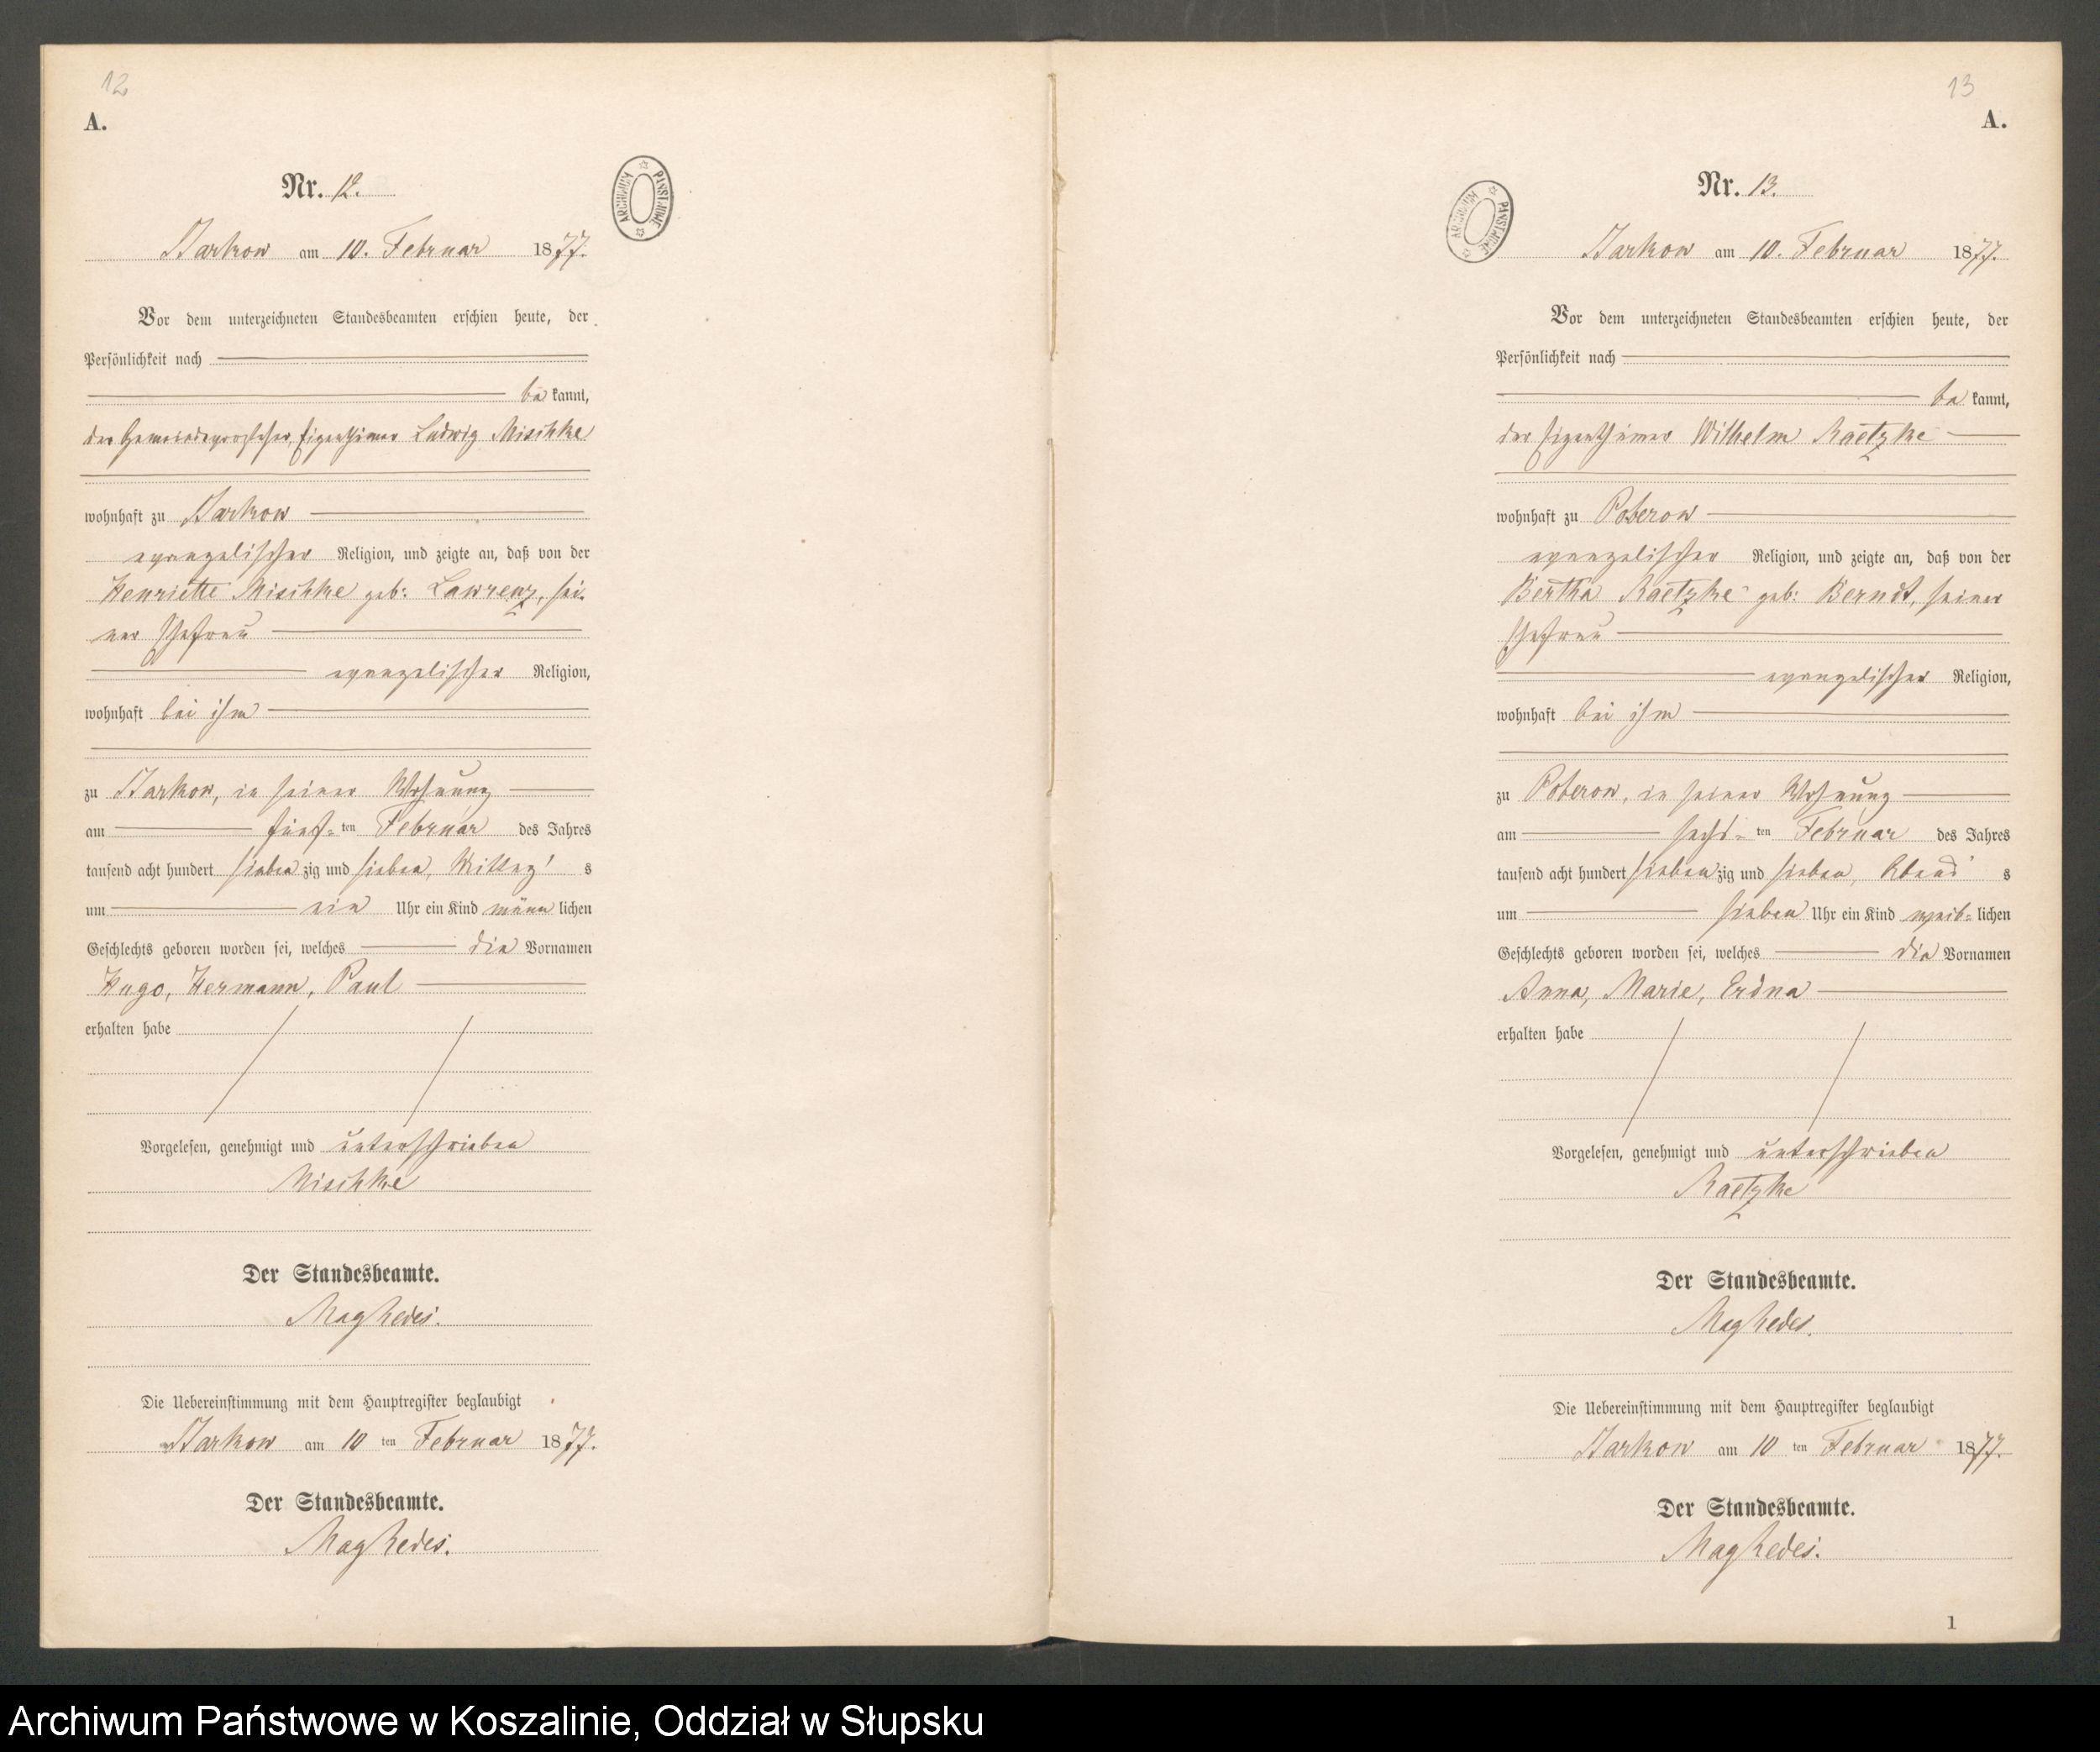 12
A.
Nr. 12.
ARCHIWUM PAŃSTWOWE
Starkow am 10. Februar 1877.
Vor dem unterzeichneten Standesbeamten erschien heute, der
Persönlichkeit nach
be kannt,
der Gemeindevorsteher, Eigenthümer Ludwig Mischke
wohnhaft zu Starkow
evangelischer Religion, und zeigte an, daß von der
Henriette Mischke geb: Lawrenz, sei-
ner Ehefrau
evangelischer Religion,
wohnhaft bei ihm
zu Starkow, in seiner Wohnung
am fünf- ten Februar des Jahres
tausend acht hundert sieben zig und sieben, Mittag' s
um ein Uhr ein Kind männ lichen
Geschlechts geboren worden sei, welches die Vornamen
Hugo, Hermann, Paul
erhalten habe
Vorgelesen, genehmigt und unterschrieben
Mischke
Der Standesbeamte.
Die Uebereinstimmung mit dem Hauptregister beglaubigt
Starkow am 10 ten Februar 1877.
Der Standesbeamte.
13
A.
Nr. 13.
ARCHIWUM PAŃSTWOWE
Starkow am 10. Februar 1877.
Vor dem unterzeichneten Standesbeamten erschien heute, der
Persönlichkeit nach
be kannt,
der Eigenthümer Wilhelm Raetzke
wohnhaft zu Poberow
evangelischer Religion, und zeigte an, daß von der
Bertha Raetzke geb: Berndt, seiner
Ehefrau
evangelischer Religion,
wohnhaft bei ihm
zu Poberow, in seiner Wohnung
am sechs- ten Februar des Jahres
tausend acht hundert sieben zig und sieben, Abend' s
um sieben Uhr ein Kind weib- lichen
Geschlechts geboren worden sei, welches die Vornamen
Anna, Marie, Erdna
erhalten habe
Vorgelesen, genehmigt und unterschrieben
Raetzke
Der Standesbeamte.
Die Uebereinstimmung mit dem Hauptregister beglaubigt
Starkow am 10 ten Februar 1877.
Der Standesbeamte.
1
Archiwum Państwowe w Koszalinie, Oddział w Słupsku